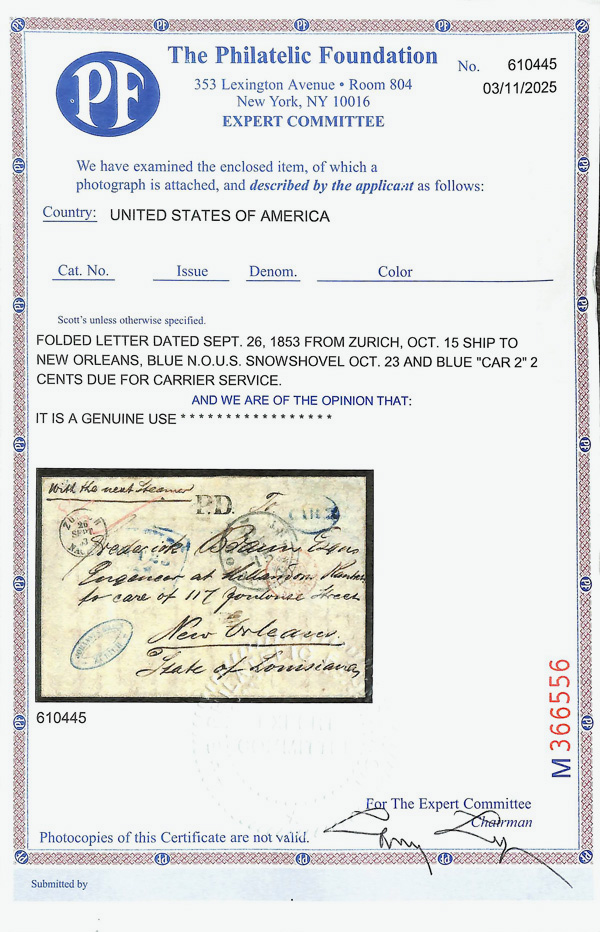 The Philatelic Foundation
No. 610445
353 Lexington Avenue • Room 804
03/11/2025
New York, NY 10016
EXPERT COMMITTEE
PF
We have examined the enclosed item, of which a
photograph is attached, and described by the applicant as follows:
Country: UNITED STATES OF AMERICA
Cat. No. Issue Denom. Color
Scott's unless otherwise specified.
FOLDED LETTER DATED SEPT. 26, 1853 FROM ZURICH, OCT. 15 SHIP TO
NEW ORLEANS, BLUE N.O.U.S. SNOWSHOVEL OCT. 23 AND BLUE "CAR 2" 2
CENTS DUE FOR CARRIER SERVICE.
AND WE ARE OF THE OPINION THAT:
IT IS A GENUINE USE * * * * * * * * * * * * * * * * *
With the next Steamer
P.D.
26
SEPT
Frederick Esqre
Engineer at
to care of 117 Street
New Orleans
State of Louisiana
610445
M 366556
For The Expert Committee
Chairman
Photocopies of this Certificate are not valid.
Submitted by